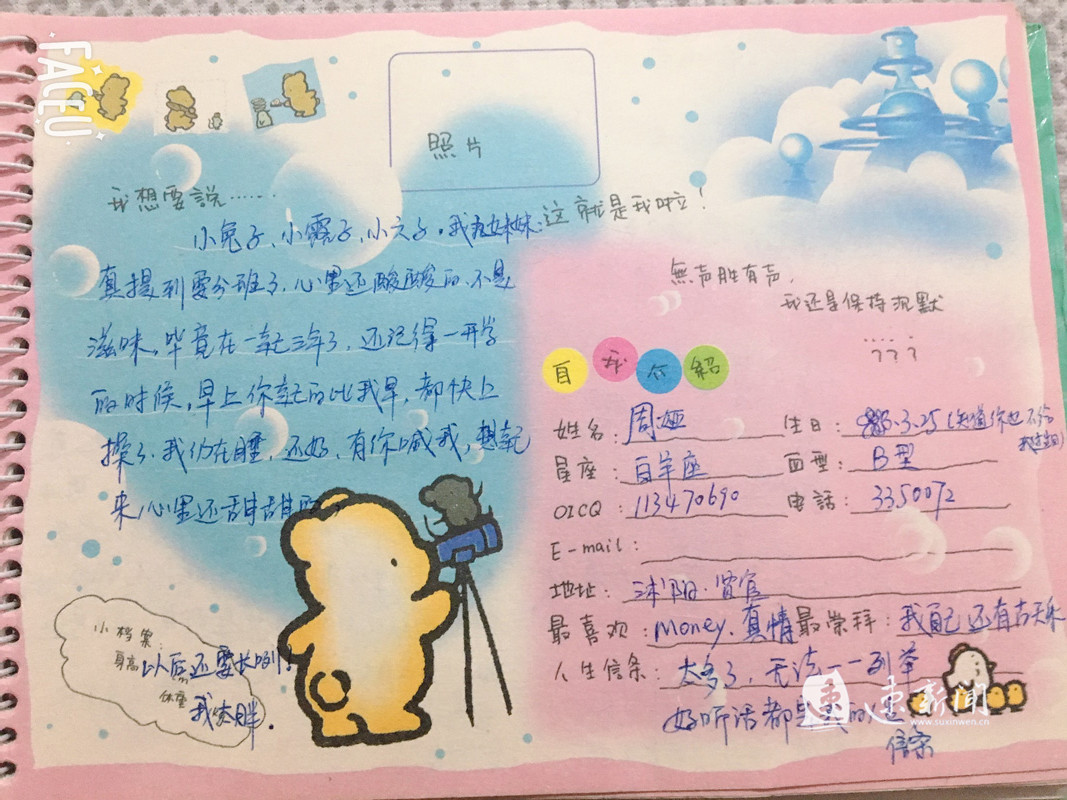 FACEU
照片
我想要說……
小兔子、小霞子、小文子。我在妹妹
真提到要分班了,心里还酸酸的,不是
滋味,毕竟在一起三年了,还记得一开学
的时候,早上你起的比我早,都快上
操了,我仍在睡,还好,有你喊我,想起
来,心里还甜甜的
小档案:
身高 以后还要长咧!
体重
我太胖.
这就是我啦!
無声胜有声,
我还是保持沉默
……
???
自我介紹
姓名:周娅 生日:86.3.25(知道你也不给
我过的)
星座:白羊座 血型:B型
OICQ:113470690 电話:3350072
E-mail:
地址:沭阳·贤官
最喜欢:Money、真情 最崇拜:我自己还有古天乐
人生信条:太多了,无法一一列举
好听话都是我的
信条
速新闻
www.suxinwen.cn